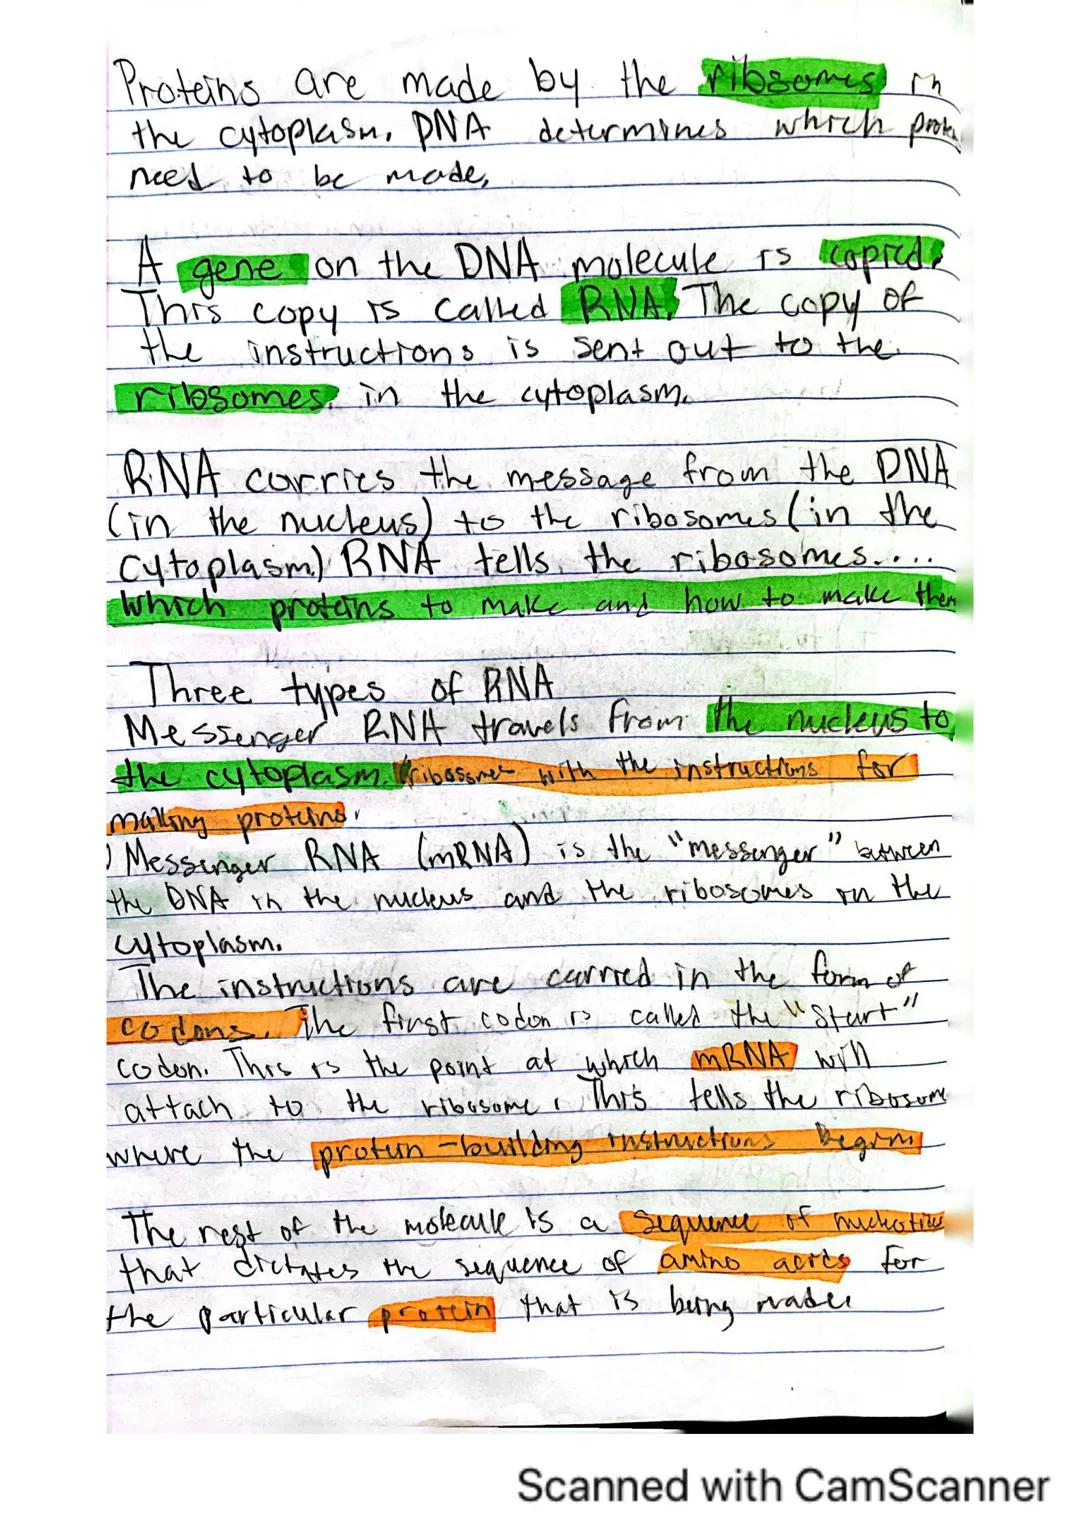 Proteins are made by the ribsomes in
the cytoplasm. DNA determines which
need to be made,
A gene on the DNA molecule is copied.
This copy is called RNA. The copy of
the instructions is sent out to the
ribsomes. in the cytoplasm.
RNA carries the message from the DNA
(in the nucleus) to the ribosomes (in the
cytoplasm.) RNA tells the ribosomes....
which proteins to make and how to make them
Three types of RNA
Messenger RNA travels from the nucleus to
the cytoplasm. with the instructions for
making proteins.
Messenger RNA (mRNA) is the "messenger" between
the DNA in the nucleus and the ribosomes in the
cytoplasm.
The instructions are carried in the form of
codons. The first codon is called the "Start"
codon. This is the point at which mRNA will
attach to the ribosome. This tells the ribosom
where the protein-building instructions begin
The rest of the molecule is a sequence of
that dictates the sequence of amino acids for
the particular protein that is being made.
Scanned with CamScanner